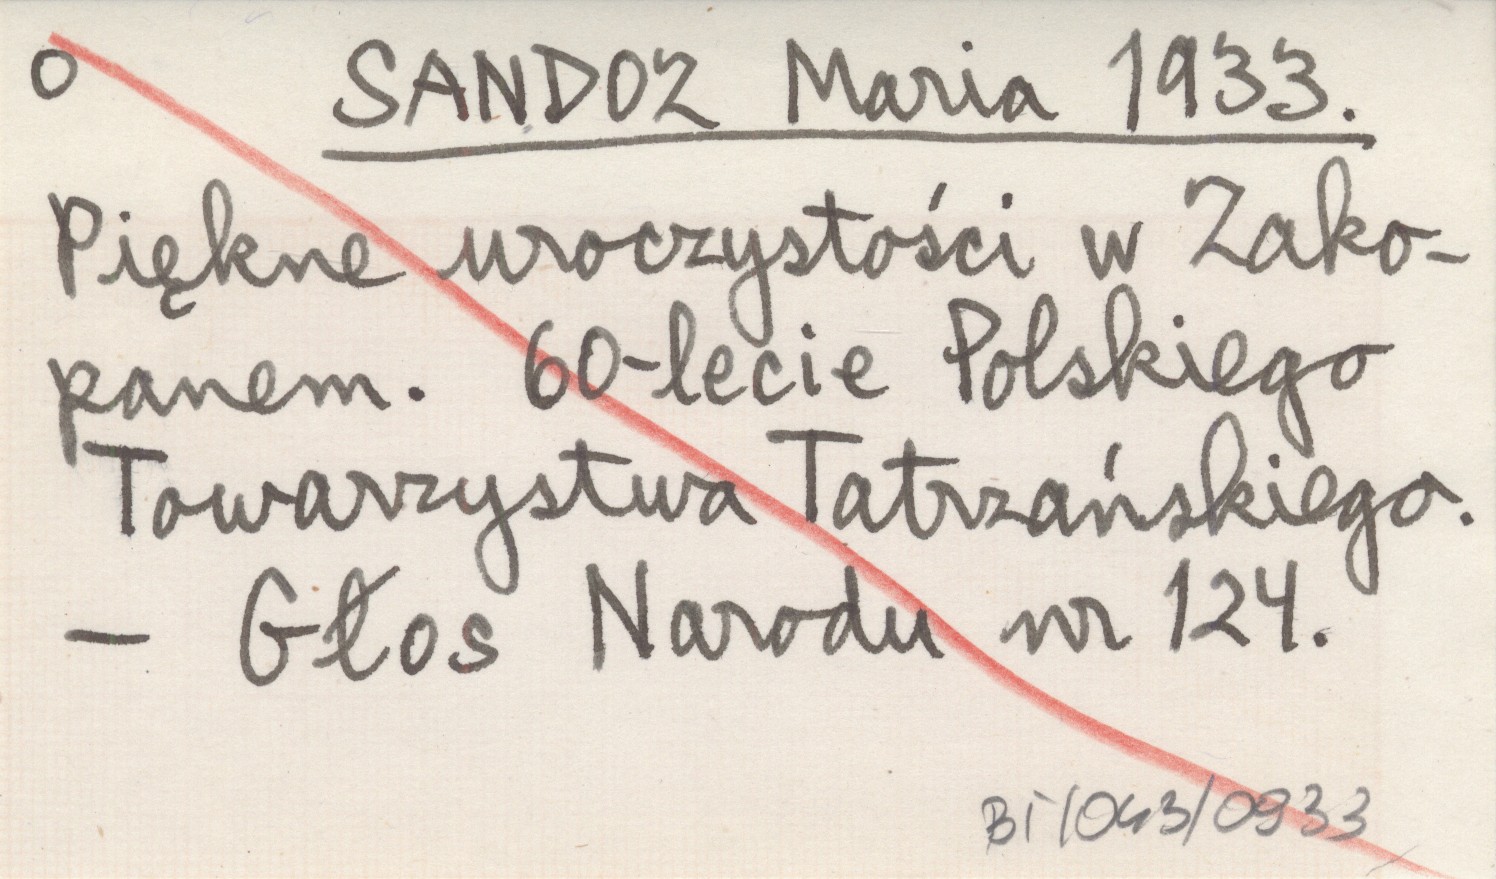 O SANDOZ Maria 1933.
Piękne uroczystości w Zako-
panem. 60-lecie Polskiego
Towarzystwa Tatrzańskiego.
— Głos Narodu nr 124.
BI/043/0933